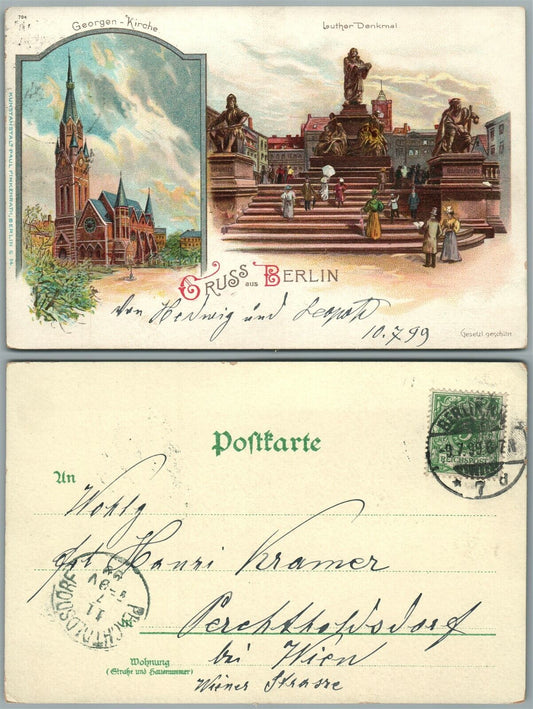 704
Georgen-Kirche
Luther Denkmal
KUNSTANSTALT PAUL FINKENRATH, BERLIN C. 14.
GRUSS aus BERLIN
Von Hedwig und Leopold
10.7.99
Gesetzl. geschützt.
Postkarte
BERLIN
9.7.99
7
An
Wohlg
Henri Kramer
PERCHTOLDSDORF
11
7
99
in
Perchtholdsdorf
bei Wien
Wohnung
(Straße und Hausnummer)
Wiener Strasse